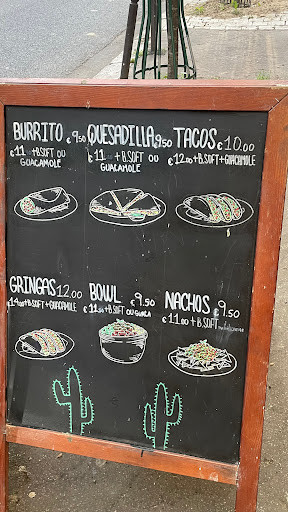 BURRITO €9.50
€11 +B.SOFT OU
GUACAMOLE
QUESADILLA 9.50
€11 +B.SOFT OU
GUACAMOLE
TACOS €10.00
€12.00+B.SOFT+GUACAMOLE
GRINGAS 12.00
€14.00+B.SOFT+GUACAMOLE
BOWL €9.50
€11.00+B.SOFT OU GUACA
NACHOS €9.50
€11.00+B.SOFT